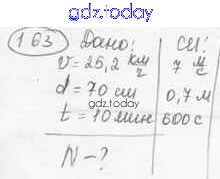 gdz.today
163 Дано: СИ:
v = 25,2 км/ч 7 м/с
d = 70 см 0,7 м
gdz.today
t = 10 мин 600 с
N - ?
gdz.today